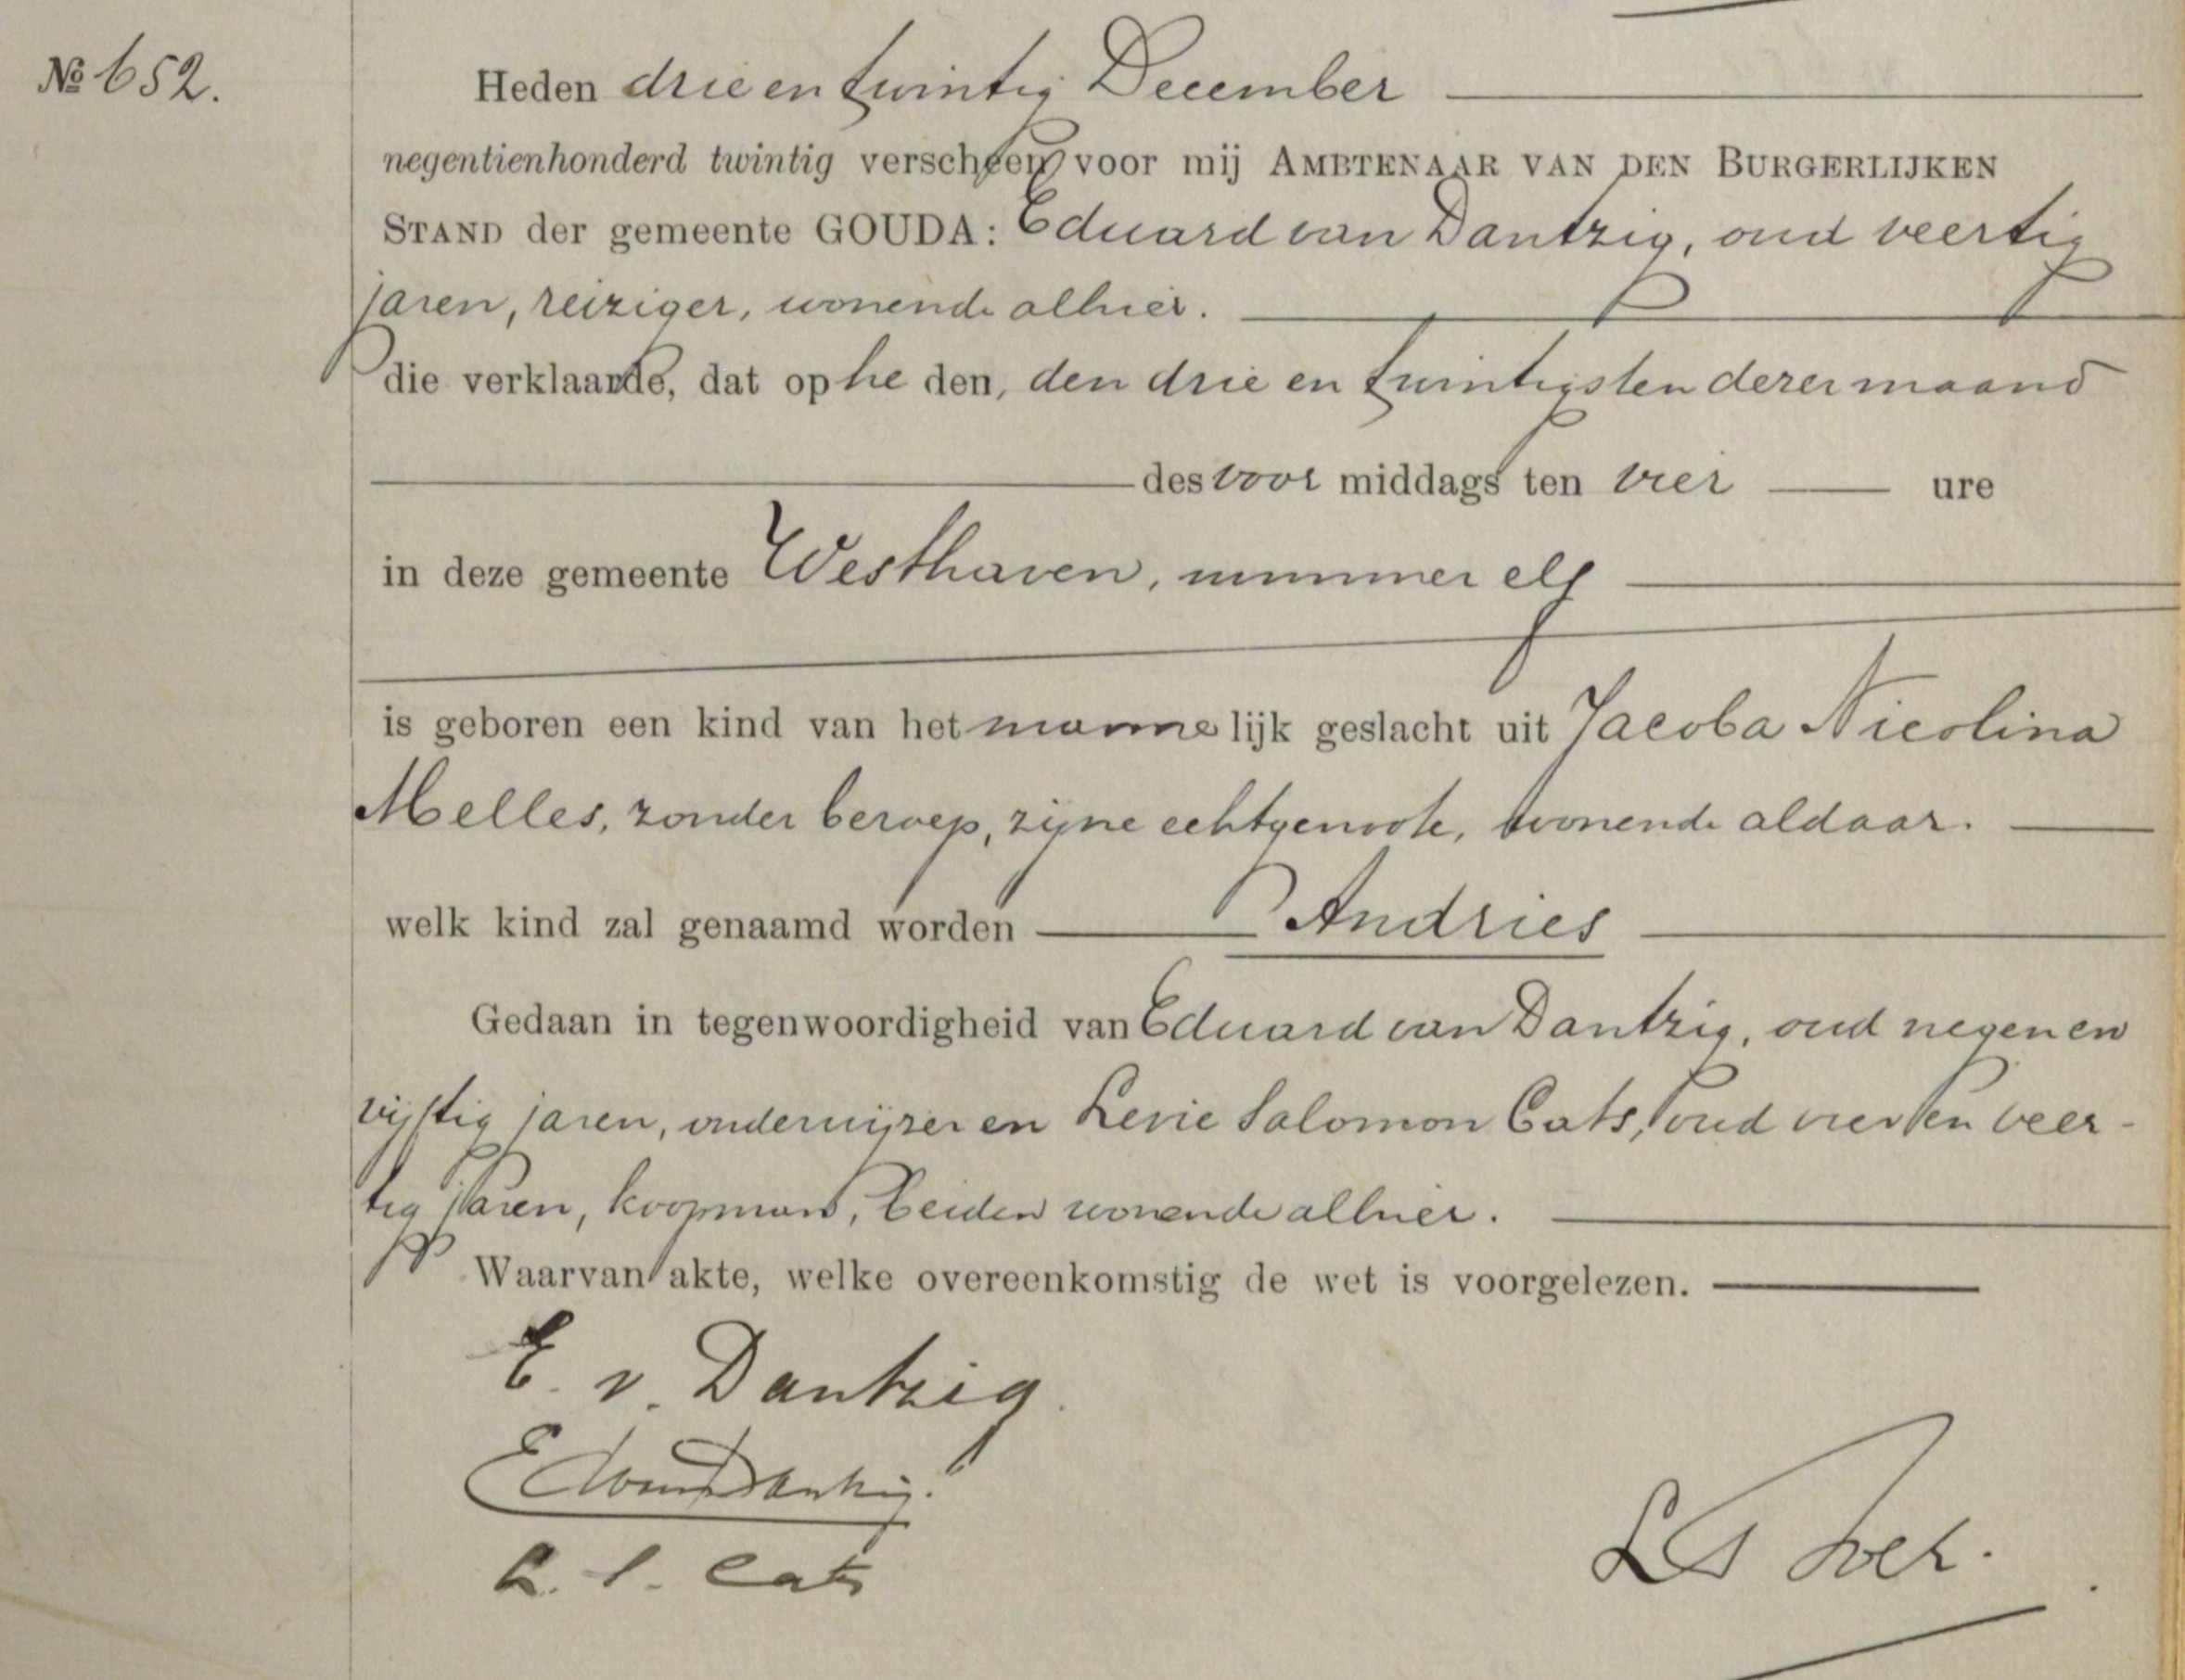 № 652.
Heden drie en twintig December
negentienhonderd twintig verscheen voor mij AMBTENAAR VAN DEN BURGERLIJKEN
STAND der gemeente GOUDA: Eduard van Dantzig, oud veertig
jaren, reiziger, wonende alhier.
die verklaarde, dat op heden, den drie en twintigsten dezer maand
des voormiddags ten vier ure
in deze gemeente Westhaven, nummer elf
is geboren een kind van het mannelijk geslacht uit Jacoba Nicolina
Melles, zonder beroep, zijne echtgenoote, wonende aldaar.
welk kind zal genaamd worden Andries
Gedaan in tegenwoordigheid van Eduard van Dantzig, oud negen en
vijftig jaren, onderwijzer en Levie Salomon Cats, oud vier en veer-
tig jaren, koopman, beiden wonende alhier.
Waarvan akte, welke overeenkomstig de wet is voorgelezen.
E. v. Dantzig.
EdvanDantzig.
L. S. Cats